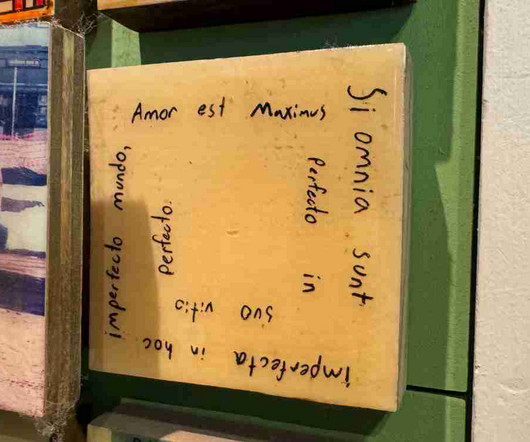 Si omnia sunt
imperfecta in hoc
imperfecto mundo,
Amor est Maximus
perfecto in
suo vitio
perfecto.